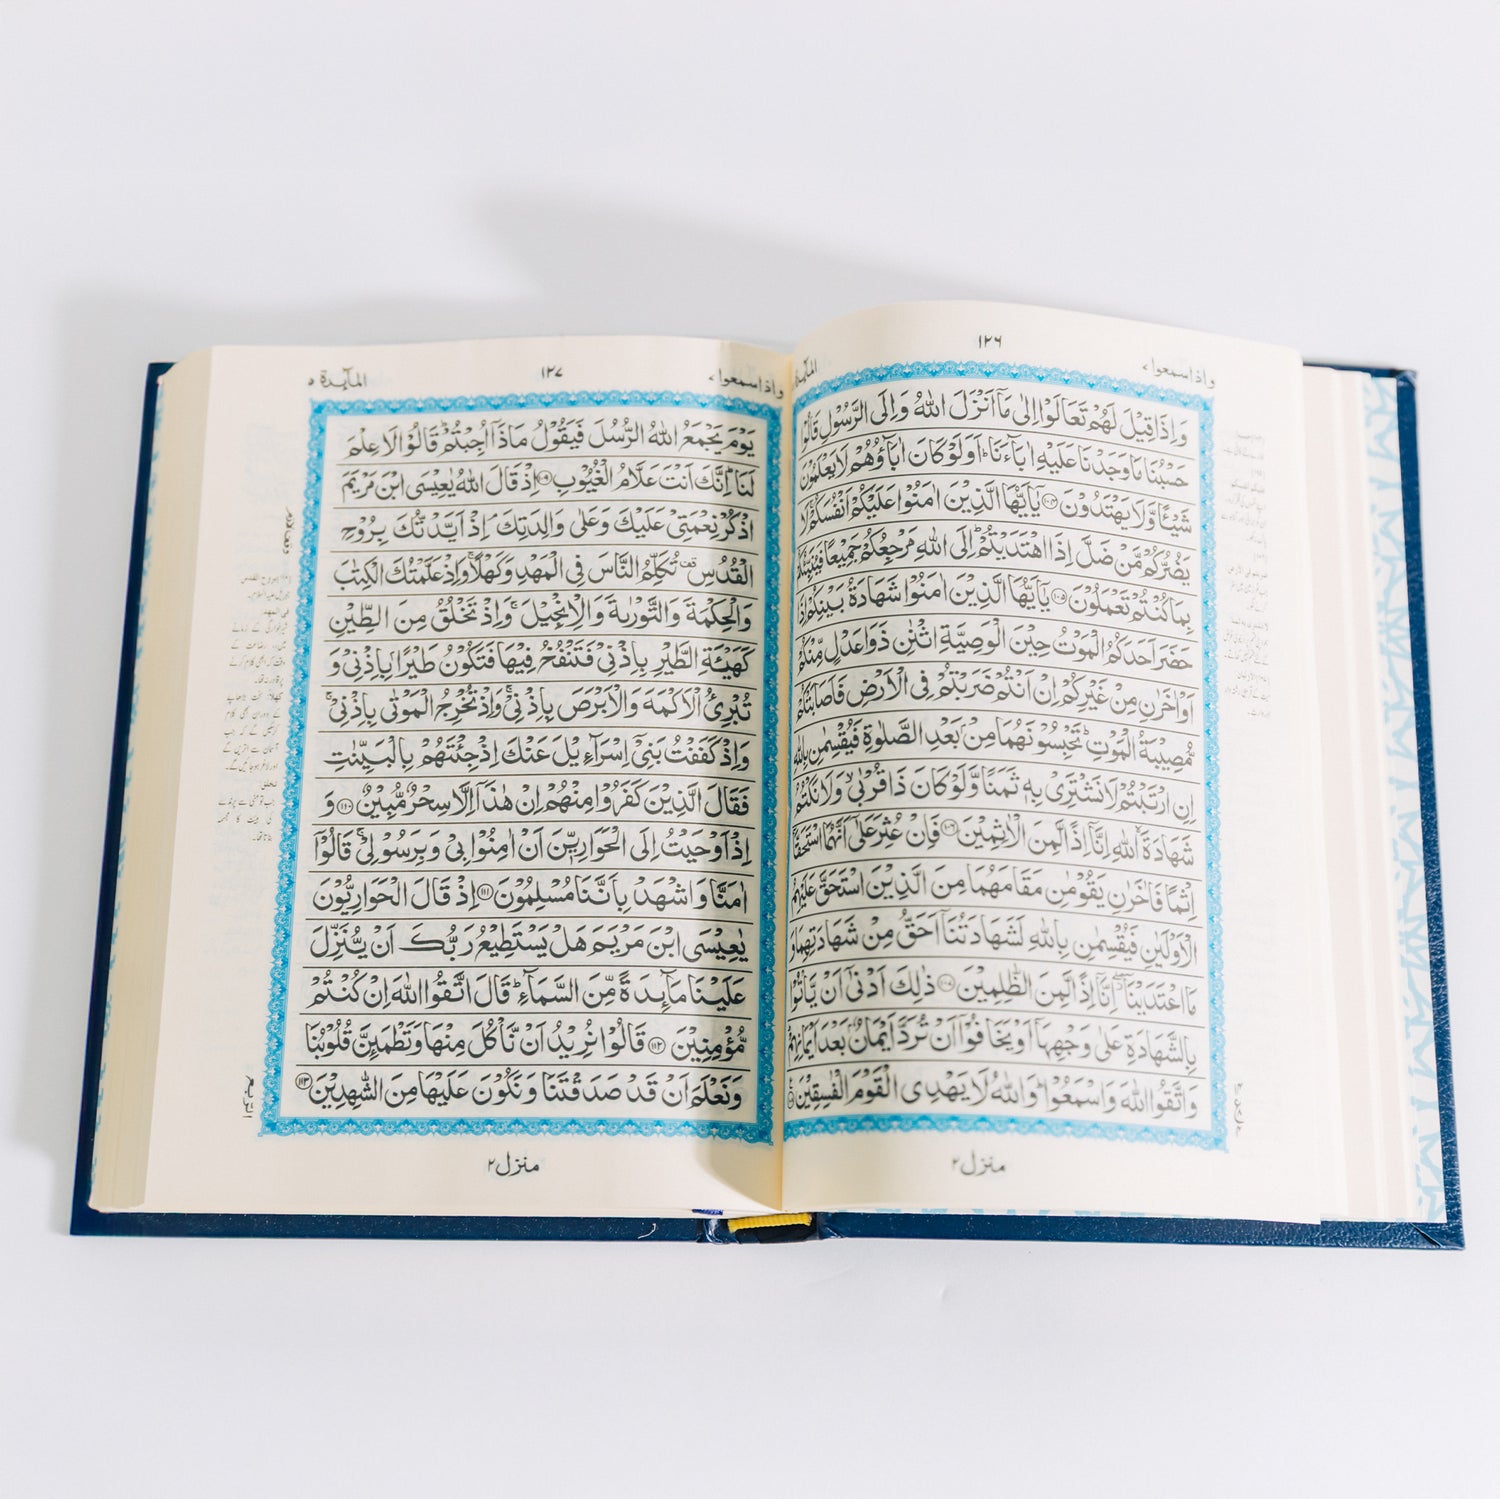 واذاسمعوا ٧
١٢٦
المآىِٕدة
وَاِذَا قِيْلَ لَهُمْ تَعَالَوْا اِلٰى مَاۤ اَنْزَلَ اللّٰهُ وَاِلَى الرَّسُوْلِ قَالُوْا
حَسْبُنَا مَا وَجَدْنَا عَلَيْهِ اٰبَآءَنَا ؕ اَوَلَوْ كَانَ اٰبَآؤُهُمْ لَا يَعْلَمُوْنَ
شَيْـًٔا وَّلَا يَهْتَدُوْنَ ۝۱۰۴ يٰۤاَيُّهَا الَّذِيْنَ اٰمَنُوْا عَلَيْكُمْ اَنْفُسَكُمْ ۚ لَا
يَضُرُّكُمْ مَّنْ ضَلَّ اِذَا اهْتَدَيْتُمْ ؕ اِلَى اللّٰهِ مَرْجِعُكُمْ جَمِيْعًا فَيُنَبِّئُكُمْ
بِمَا كُنْتُمْ تَعْمَلُوْنَ ۝۱۰۵ يٰۤاَيُّهَا الَّذِيْنَ اٰمَنُوْا شَهَادَةُ بَيْنِكُمْ اِذَا
حَضَرَ اَحَدَكُمُ الْمَوْتُ حِيْنَ الْوَصِيَّةِ اثْنٰنِ ذَوَا عَدْلٍ مِّنْكُمْ
اَوْ اٰخَرٰنِ مِنْ غَيْرِكُمْ اِنْ اَنْتُمْ ضَرَبْتُمْ فِى الْاَرْضِ فَاَصَابَتْكُمْ
مُّصِيْبَةُ الْمَوْتِ ؕ تَحْبِسُوْنَهُمَا مِنْۢ بَعْدِ الصَّلٰوةِ فَيُقْسِمٰنِ بِاللّٰهِ
اِنِ ارْتَبْتُمْ لَا نَشْتَرِىْ بِهٖ ثَمَنًا وَّلَوْ كَانَ ذَا قُرْبٰى ۙ وَلَا نَكْتُمُ
شَهَادَةَ ۙ اللّٰهِ اِنَّاۤ اِذًا لَّمِنَ الْاٰثِمِيْنَ ۝۱۰۶ فَاِنْ عُثِرَ عَلٰۤى اَنَّهُمَا اسْتَحَقَّاۤ
اِثْمًا فَاٰخَرٰنِ يَقُوْمٰنِ مَقَامَهُمَا مِنَ الَّذِيْنَ اسْتَحَقَّ عَلَيْهِمُ
الْاَوْلَيٰنِ فَيُقْسِمٰنِ بِاللّٰهِ لَشَهَادَتُنَاۤ اَحَقُّ مِنْ شَهَادَتِهِمَا وَ
مَا اعْتَدَيْنَاۤ ۖ اِنَّاۤ اِذًا لَّمِنَ الظّٰلِمِيْنَ ۝۱۰۷ ذٰلِكَ اَدْنٰۤى اَنْ يَّاْتُوْا
بِالشَّهَادَةِ عَلٰى وَجْهِهَاۤ اَوْ يَخَافُوْۤا اَنْ تُرَدَّ اَيْمَانٌۢ بَعْدَ اَيْمَانِهِمْ
وَاتَّقُوا اللّٰهَ وَاسْمَعُوْا ؕ وَاللّٰهُ لَا يَهْدِى الْقَوْمَ الْفٰسِقِيْنَ
منزل ۲
واذاسمعوا ٧
١٢٧
المآىِٕدة ٥
يَوْمَ يَجْمَعُ اللّٰهُ الرُّسُلَ فَيَقُوْلُ مَاذَاۤ اُجِبْتُمْ ؕ قَالُوْا لَا عِلْمَ
لَنَا ؕ اِنَّكَ اَنْتَ عَلَّامُ الْغُيُوْبِ ۝۱۰۹ اِذْ قَالَ اللّٰهُ يٰعِيْسَى ابْنَ مَرْيَمَ
اذْكُرْ نِعْمَتِىْ عَلَيْكَ وَعَلٰى وَالِدَتِكَ ۘ اِذْ اَيَّدْتُّكَ بِرُوْحِ
الْقُدُسِ ۟ قف تُكَلِّمُ النَّاسَ فِى الْمَهْدِ وَكَهْلًا ۚ وَاِذْ عَلَّمْتُكَ الْكِتٰبَ
وَالْحِكْمَةَ وَالتَّوْرٰىةَ وَالْاِنْجِيْلَ ۚ وَاِذْ تَخْلُقُ مِنَ الطِّيْنِ
كَهَيْـَٔةِ الطَّيْرِ بِاِذْنِىْ فَتَنْفُخُ فِيْهَا فَتَكُوْنُ طَيْرًۢا بِاِذْنِىْ وَ
تُبْرِئُ الْاَكْمَهَ وَالْاَبْرَصَ بِاِذْنِىْ ۚ وَاِذْ تُخْرِجُ الْمَوْتٰى بِاِذْنِىْ ۚ
وَاِذْ كَفَفْتُ بَنِىْۤ اِسْرَآءِيْلَ عَنْكَ اِذْ جِئْتَهُمْ بِالْبَيِّنٰتِ
فَقَالَ الَّذِيْنَ كَفَرُوْا مِنْهُمْ اِنْ هٰذَاۤ اِلَّا سِحْرٌ مُّبِيْنٌ ۝۱۱۰ وَ
اِذْ اَوْحَيْتُ اِلَى الْحَوَارِيّٖنَ اَنْ اٰمِنُوْا بِىْ وَبِرَسُوْلِىْ ۚ قَالُوْۤا
اٰمَنَّا وَاشْهَدْ بِاَنَّنَا مُسْلِمُوْنَ ۝۱۱۱ اِذْ قَالَ الْحَوَارِيُّوْنَ
يٰعِيْسَى ابْنَ مَرْيَمَ هَلْ يَسْتَطِيْعُ رَبُّكَ اَنْ يُّنَزِّلَ
عَلَيْنَا مَآىِٕدَةً مِّنَ السَّمَآءِ ؕ قَالَ اتَّقُوا اللّٰهَ اِنْ كُنْتُمْ
مُّؤْمِنِيْنَ ۝۱۱۲ قَالُوْا نُرِيْدُ اَنْ نَّاْكُلَ مِنْهَا وَتَطْمَىِٕنَّ قُلُوْبُنَا
وَنَعْلَمَ اَنْ قَدْ صَدَقْتَنَا وَنَكُوْنَ عَلَيْهَا مِنَ الشّٰهِدِيْنَ ۝۱۱۳
منزل ۲